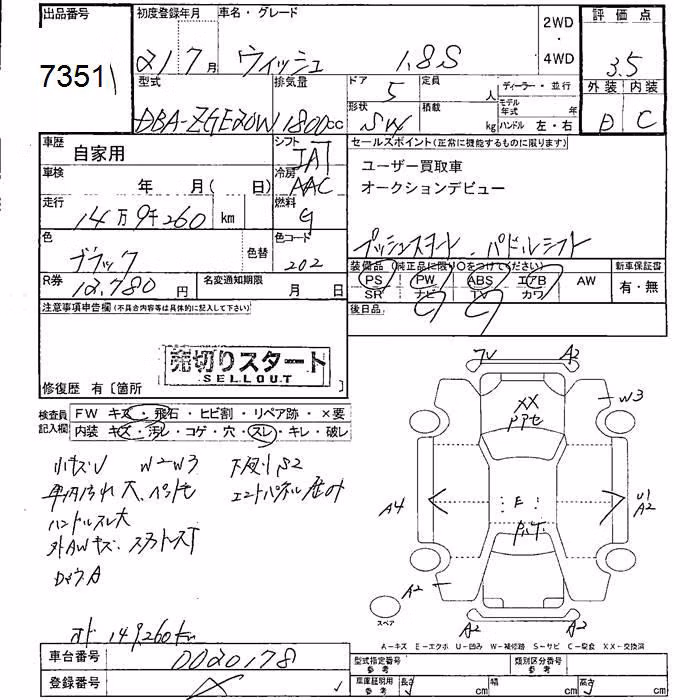 出品番号
7351
初度登録年月
21/7月
車名・グレード
ウィッシュ 1.8S
2WD
・
4WD
評価点
3.5
外装 内装
D C
型式
DBA-ZGE20W
排気量
1800cc
ドア
5
定員
人
形状
SW
積載
kg
ディーラー・並行
モデル年式 年
ハンドル 左・右
車歴
自家用
シフト
IAT
車検
年 月( 日)
冷房
AAC
走行
14万9千260km
燃料
G
色
ブラック
色替
色コード
202
R券
12,780円
名変通知期限
月 日
セールスポイント(正常に機能するものに限ります)
ユーザー買取車
オークションデビュー
プッシュスタート・パドルシフト
装備品(純正品に限り○をつけてください)
新車保証書
PS PW ABS エアB AW
有・無
SR ナビ TV カワ
後日品
注意事項申告欄(不具合内容等は具体的に記入して下さい)
売切りスタート
SELLOUT
修復歴 有〔箇所 〕
検査員記入欄
FW キズ・飛石・ヒビ割・リペア跡・×要
内装 キズ・汚レ・コゲ・穴・スレ・キレ・破レ
小キズU W2W3 下廻りS2
ハンドルスレ大
外AWキズ・
オド 149,260km
7V A2
XX
W3
A4
E
U1
A2
A2
A2 A2
スペア
A-キズ E-エクボ U-凹み W-補修跡 S-サビ C-腐食 XX-交換済
車台番号
0020178
登録番号
型式指定番号 参考
類別区分番号 参考
車庫証明用 参考
長さ cm 幅 cm 高さ cm